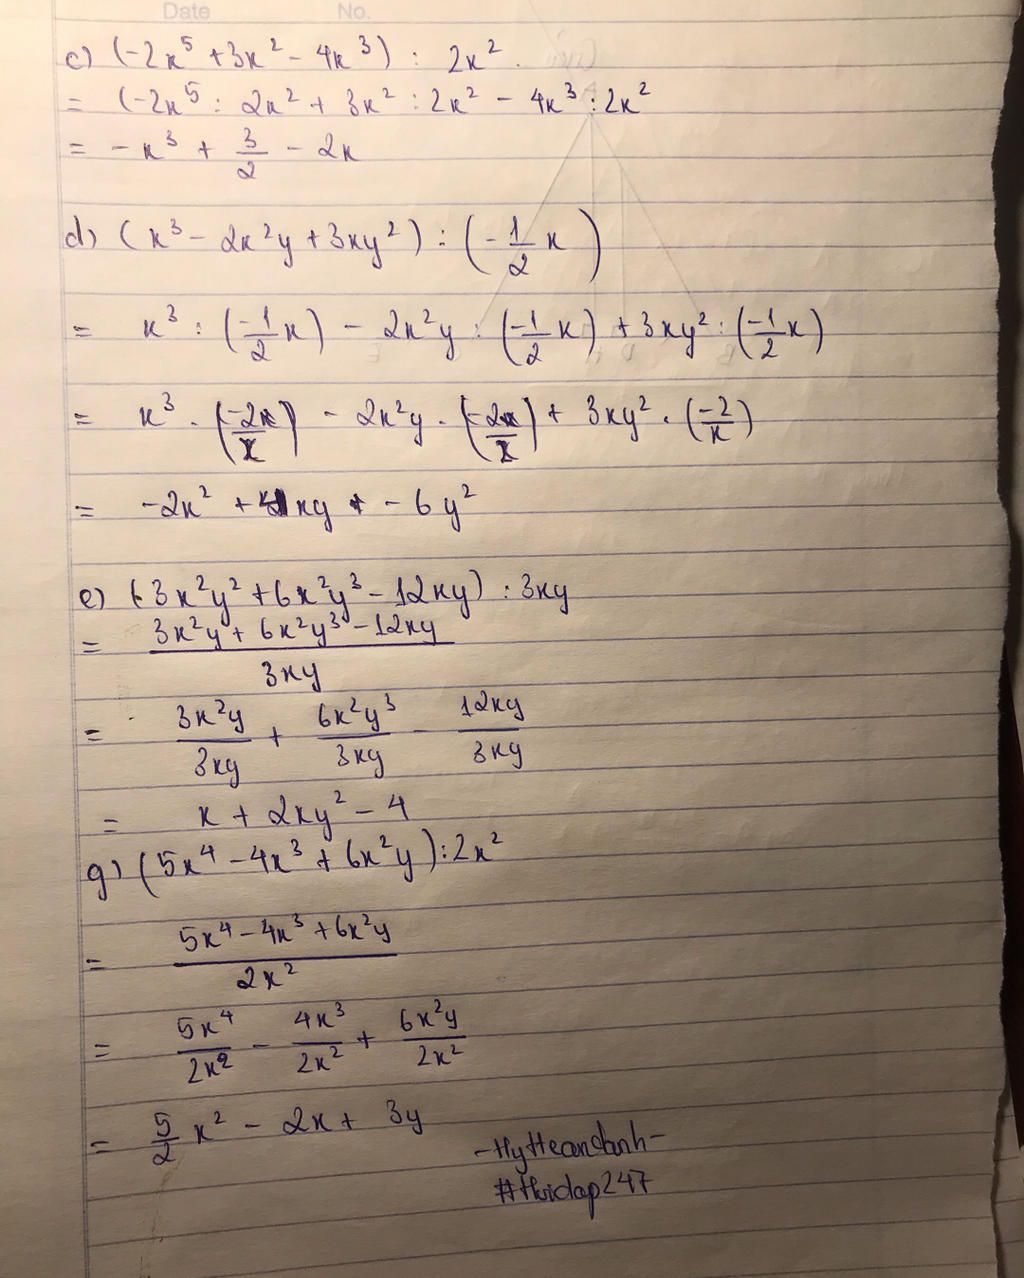 Date No.
c) (-2x⁵ + 3x² - 4x³) : 2x².
= (-2x⁵ : 2x² + 3x² : 2x² - 4x³ : 2x²
= -x³ + 3/2 - 2x
d) (x³ - 2x²y + 3xy²) : (-1/2 x)
= x³ : (-1/2 x) - 2x²y : (-1/2 x) + 3xy² : (-1/2 x)
= x³ . (-2/x) - 2x²y . (-2/x) + 3xy² . (-2/x)
= -2x² + 4xy - 6y²
e) (3x²y² + 6x²y³ - 12xy) : 3xy
= (3x²y + 6x²y³ - 12xy)/3xy
= 3x²y/3xy + 6x²y³/3xy - 12xy/3xy
= x + 2xy² - 4
g) (5x⁴ - 4x³ + 6x²y) : 2x²
= (5x⁴ - 4x³ + 6x²y)/2x²
= 5x⁴/2x² - 4x³/2x² + 6x²y/2x²
= 5/2 x² - 2x + 3y
#Hoidap247